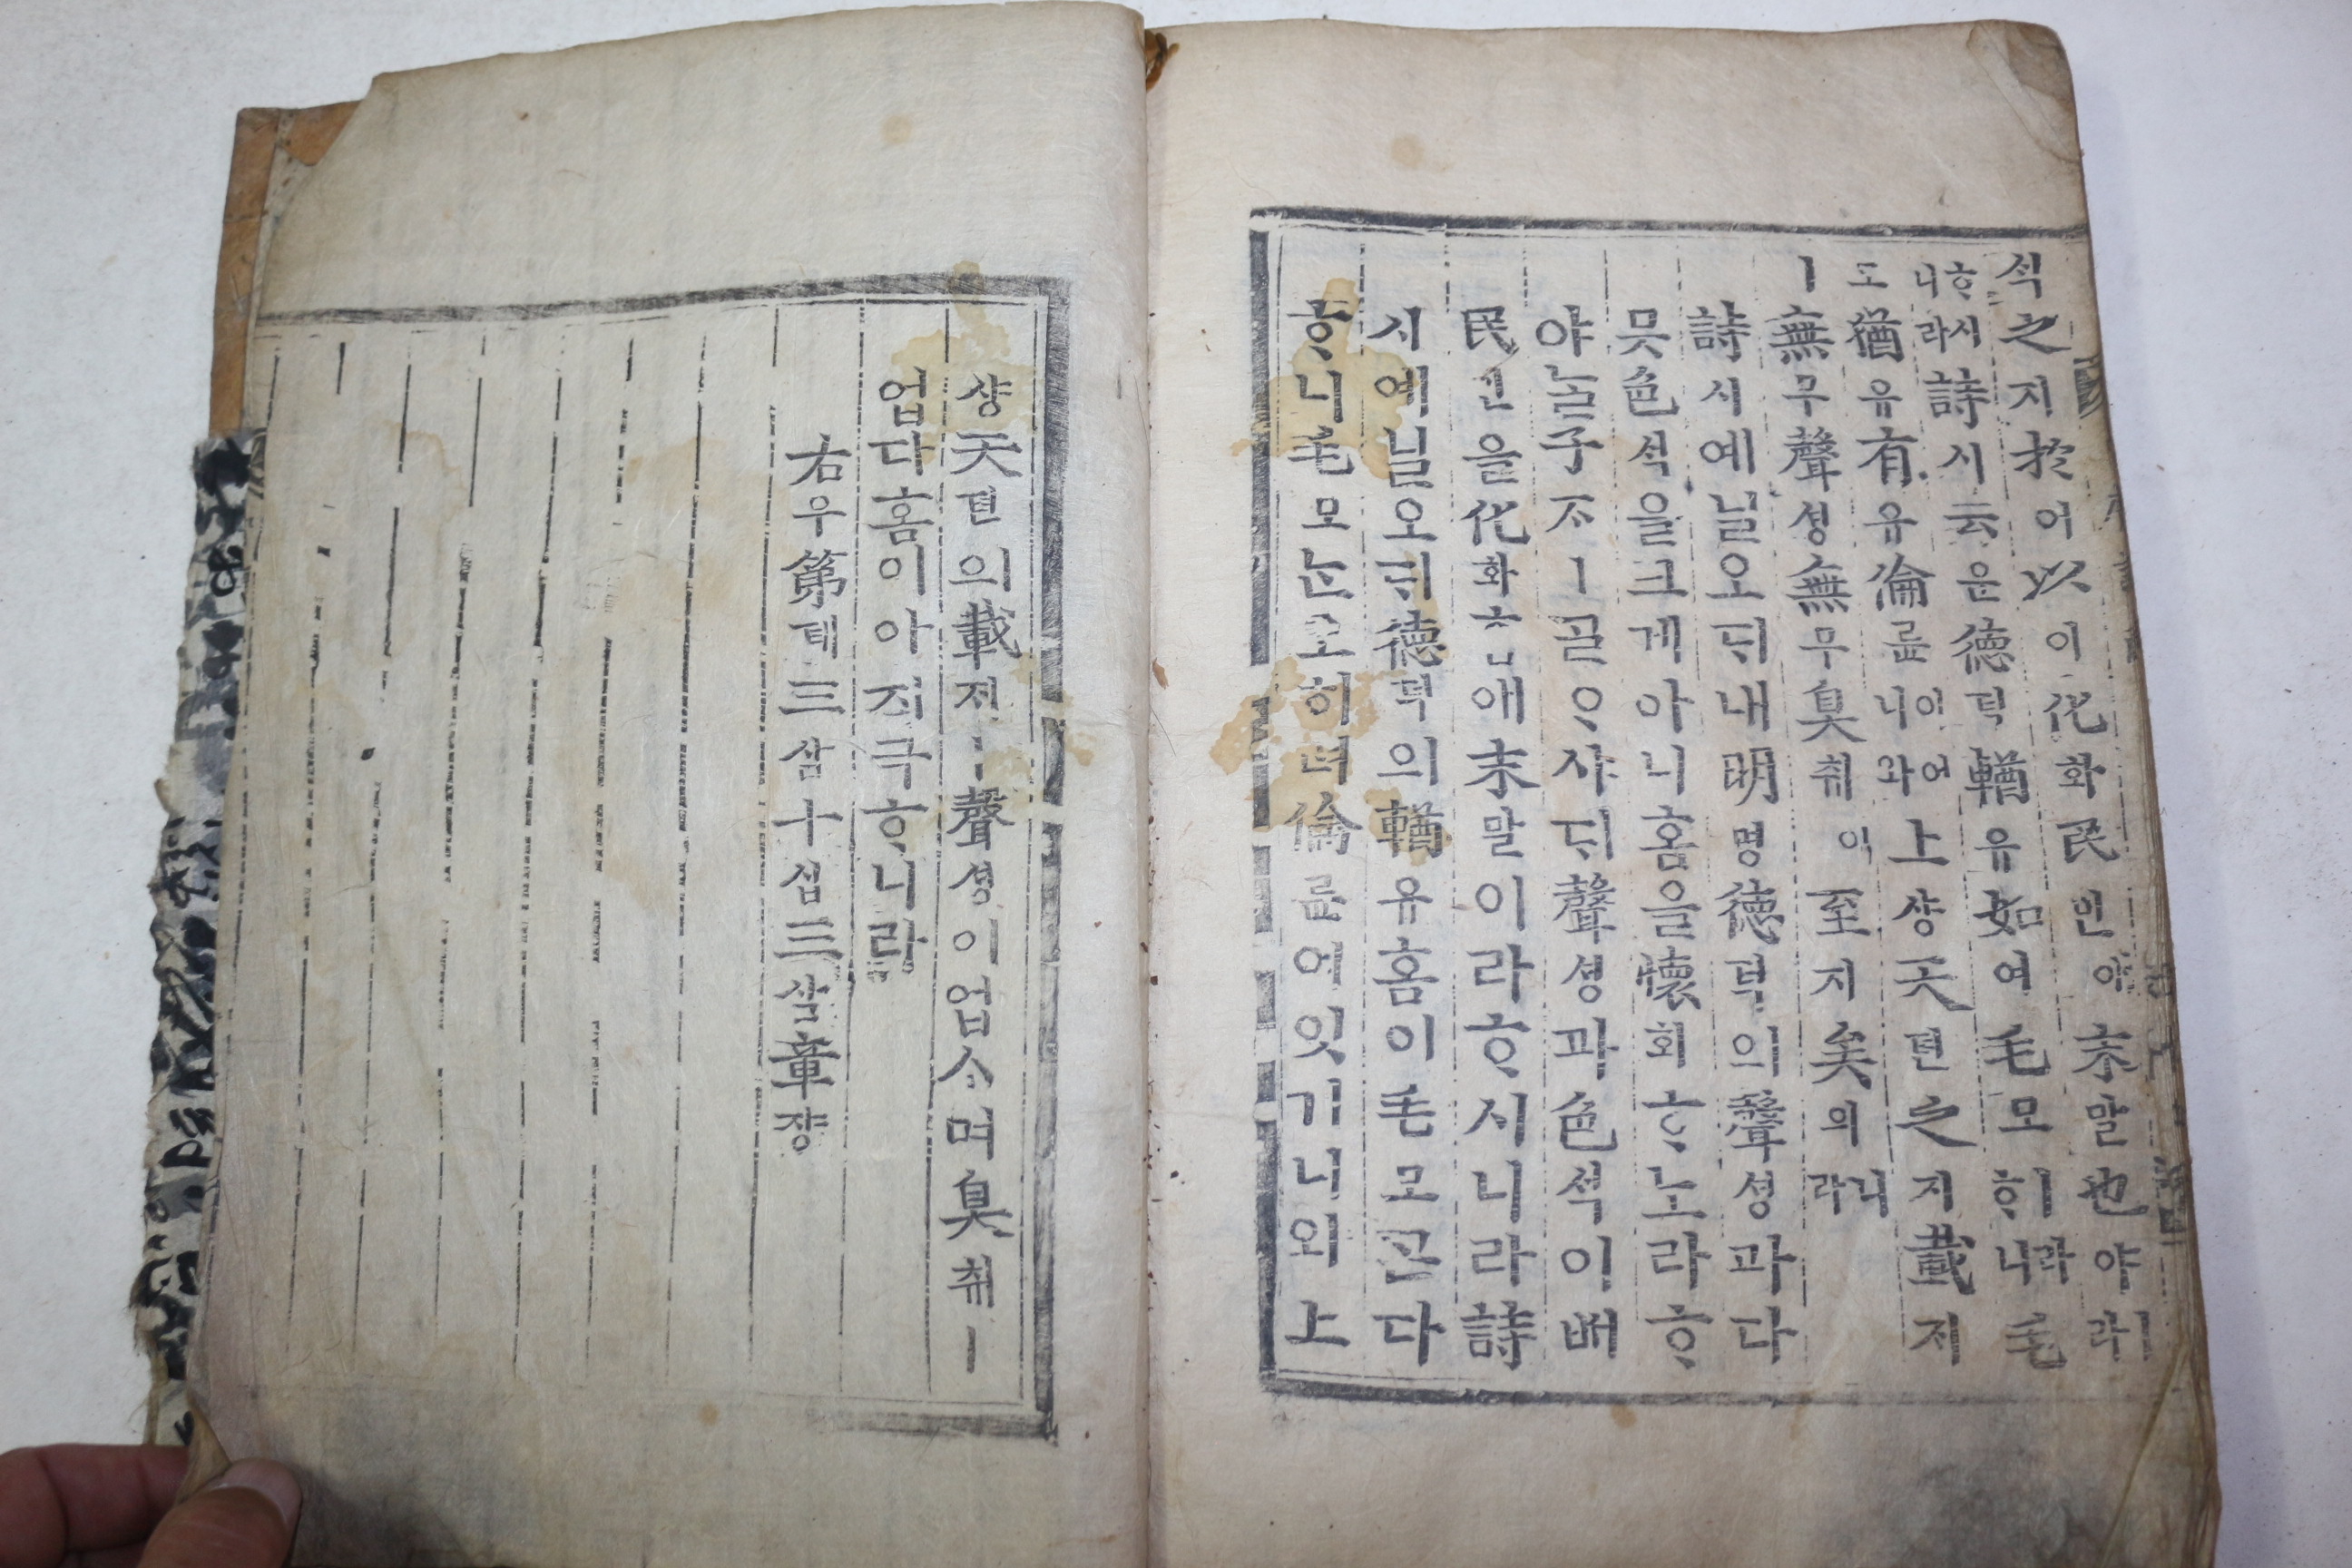 ᄉᆡᆨ之지於어以이化화民민애末말也야ㅣ라
ᄒᆞ시니라詩시云운德덕輶유如여毛모ㅣ라ᄒᆞ니毛
모도猶유有유倫륜이어니와上샹天텬之지載ᄌᆡ
ㅣ無무聲셩無무臭취아至지矣의니라
詩시예닐오ᄃᆡ내明명德덕의聲셩과다
ᄆᆞᆺ色ᄉᆡᆨ을크게아니홈을懷회ᄒᆞ노라ᄒᆞ
야ᄂᆞᆯ子ᄌᆞㅣᄀᆞᆯᄋᆞ샤ᄃᆡ聲셩과色ᄉᆡᆨ이ᄡᅥ
民민을化화홈애末말이라ᄒᆞ시니라詩
시예닐오ᄃᆡ德덕의輶유홈이毛모ᄀᆞᆮ다
ᄒᆞ니毛모ᄂᆞᆫ오히려倫륜이잇거니와上
샹天텬의載ᄌᆡㅣ聲셩이업스며臭취ㅣ
업다홈이아지극ᄒᆞ니라
右우第뎨三삼十십三삼章쟝